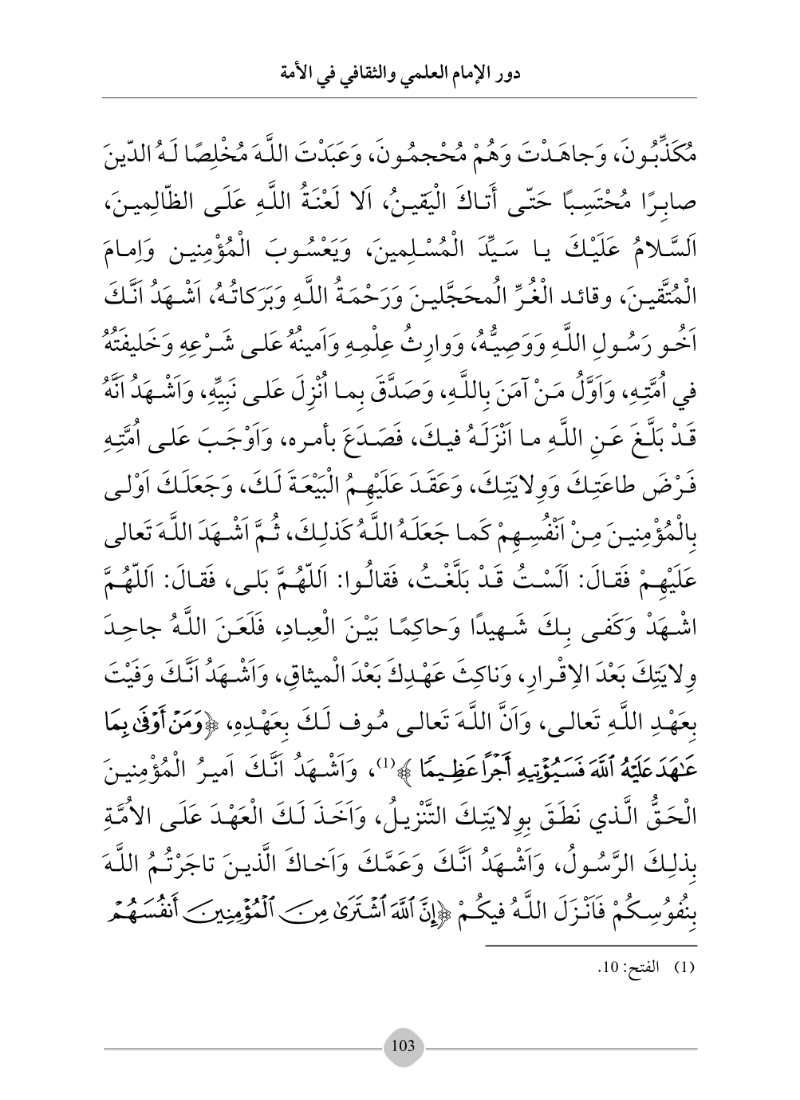 دور الإمام العلمي والثقافي في الأمة
مُكَذِّبُونَ، وَجاهَدْتَ وَهُمْ مُحْجمُونَ، وَعَبَدْتَ اللَّهَ مُخْلِصًا لَهُ الدّينَ
صابِرًا مُحْتَسِبًا حَتّى أَتاكَ الْيَقينُ، اَلا لَعْنَةُ اللَّهِ عَلَى الظّالِمينَ،
اَلسَّلامُ عَلَيْكَ يا سَيِّدَ الْمُسْلِمينَ، وَيَعْسُوبَ الْمُؤْمِنين وَاِمامَ
الْمُتَّقينَ، وقائد الْغُرِّ الُمحَجَّلينَ وَرَحْمَةُ اللَّهِ وَبَرَكاتُهُ، اَشْهَدُ اَنَّكَ
اَخُو رَسُولِ اللَّهِ وَوَصِيُّهُ، وَوارِثُ عِلْمِهِ وَاَمينُهُ عَلى شَرْعِهِ وَخَليفَتُهُ
في اُمَّتِهِ، وَاَوَّلُ مَنْ آمَنَ بِاللَّهِ، وَصَدَّقَ بِما اُنْزِلَ عَلى نَبِيِّهِ، وَاَشْهَدُ اَنَّهُ
قَدْ بَلَّغَ عَنِ اللَّهِ ما اَنْزَلَهُ فيكَ، فَصَدَعَ بأمره، وَاَوْجَبَ عَلى اُمَّتِهِ
فَرْضَ طاعَتِكَ وَوِلايَتِكَ، وَعَقَدَ عَلَيْهِمُ الْبَيْعَةَ لَكَ، وَجَعَلَكَ اَوْلى
بِالْمُؤْمِنينَ مِنْ اَنْفُسِهِمْ كَما جَعَلَهُ اللَّهُ كَذلِكَ، ثُمَّ اَشْهَدَ اللَّهَ تَعالى
عَلَيْهِمْ فَقالَ: اَلَسْتُ قَدْ بَلَّغْتُ، فَقالُوا: اَللّهُمَّ بَلى، فَقالَ: اَللّهُمَّ
اشْهَدْ وَكَفى بِكَ شَهيدًا وَحاكِمًا بَيْنَ الْعِبادِ، فَلَعَنَ اللَّهُ جاحِدَ
وِلايَتِكَ بَعْدَ الاِقْرارِ، وَناكِثَ عَهْدِكَ بَعْدَ الْميثاقِ، وَاَشْهَدُ اَنَّكَ وَفَيْتَ
بِعَهْدِ اللَّهِ تَعالى، وَاَنَّ اللَّهَ تَعالى مُوف لَكَ بِعَهْدِهِ، ﴿وَمَنْ أَوْفَىٰ بِمَا
عَـٰهَدَ عَلَيْهُ ٱللَّهَ فَسَيُؤْتِيهِ أَجْرًا عَظِيمًا ﴾(1)، وَاَشْهَدُ اَنَّكَ اَميرُ الْمُؤْمِنينَ
الْحَقُّ الَّذي نَطَقَ بِوِلايَتِكَ التَّنْزيلُ، وَاَخَذَ لَكَ الْعَهْدَ عَلَى الاُمَّةِ
بِذلِكَ الرَّسُولُ، وَاَشْهَدُ اَنَّكَ وَعَمَّكَ وَاَخاكَ الَّذينَ تاجَرْتُمُ اللَّهَ
بِنُفُوسِكُمْ فَاَنْزَلَ اللَّهُ فيكُمْ ﴿إِنَّ ٱللَّهَ ٱشْتَرَىٰ مِنَ ٱلْمُؤْمِنِينَ أَنفُسَهُمْ
(1) الفتح: 10.
103